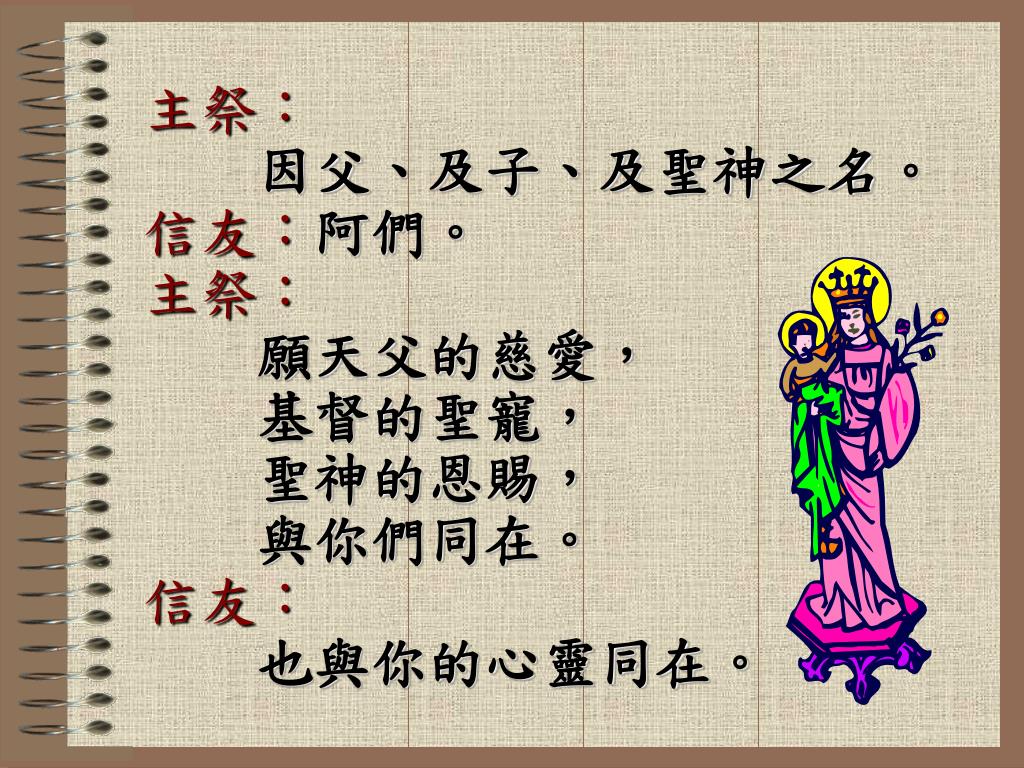 主祭：
因父、及子、及聖神之名。
信友：阿們。
主祭：
願天父的慈愛，
基督的聖寵，
聖神的恩賜，
與你們同在。
信友：
也與你的心靈同在。